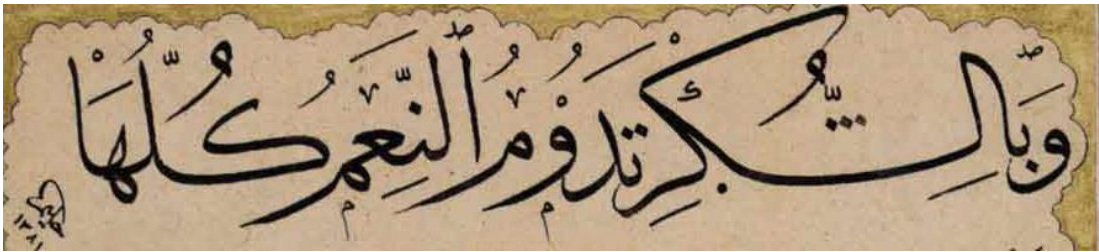 وَبِالشُّكْرِ تَدُوْمُ ٱلنِّعَمُ كُلُّهَا
١٢٨١